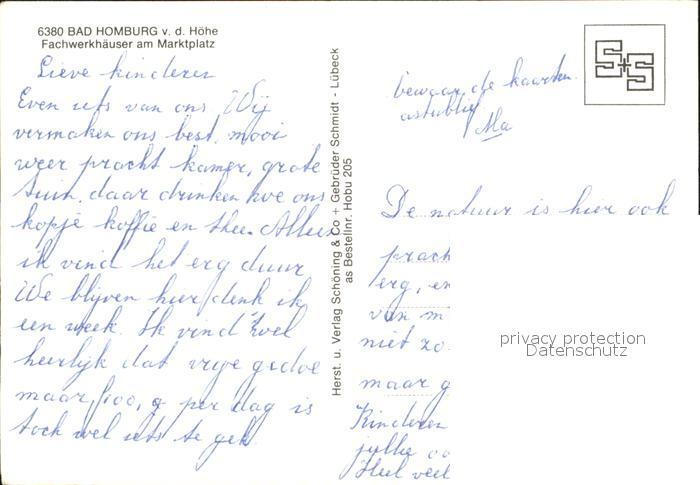 6380 BAD HOMBURG v. d. Höhe
Fachwerkhäuser am Marktplatz
Lieve kinderen
Even iets van ons, Wij
vermaken ons best, mooi
weer pracht kamer, grote
tuin, daar drinken we ons
kopje koffie en thee. Alleen
ik vind het erg duur
We blijven hier denk ik
een week. Ik vind wel
heerlijk dat vrije gedoe
maar, per dag is
toch wel iets te gek.
Herst. u. Verlag Schöning & Co + Gebrüder Schmidt - Lübeck
as Bestellnr. Hobu 205
S+S
bewaar de kaarten
astublie
Ma
De natuur is hier ook
prach
erg, en
van m
niet zo
maar g
Kinderen
jullie oo
Heel veel
privacy protection
Datenschutz